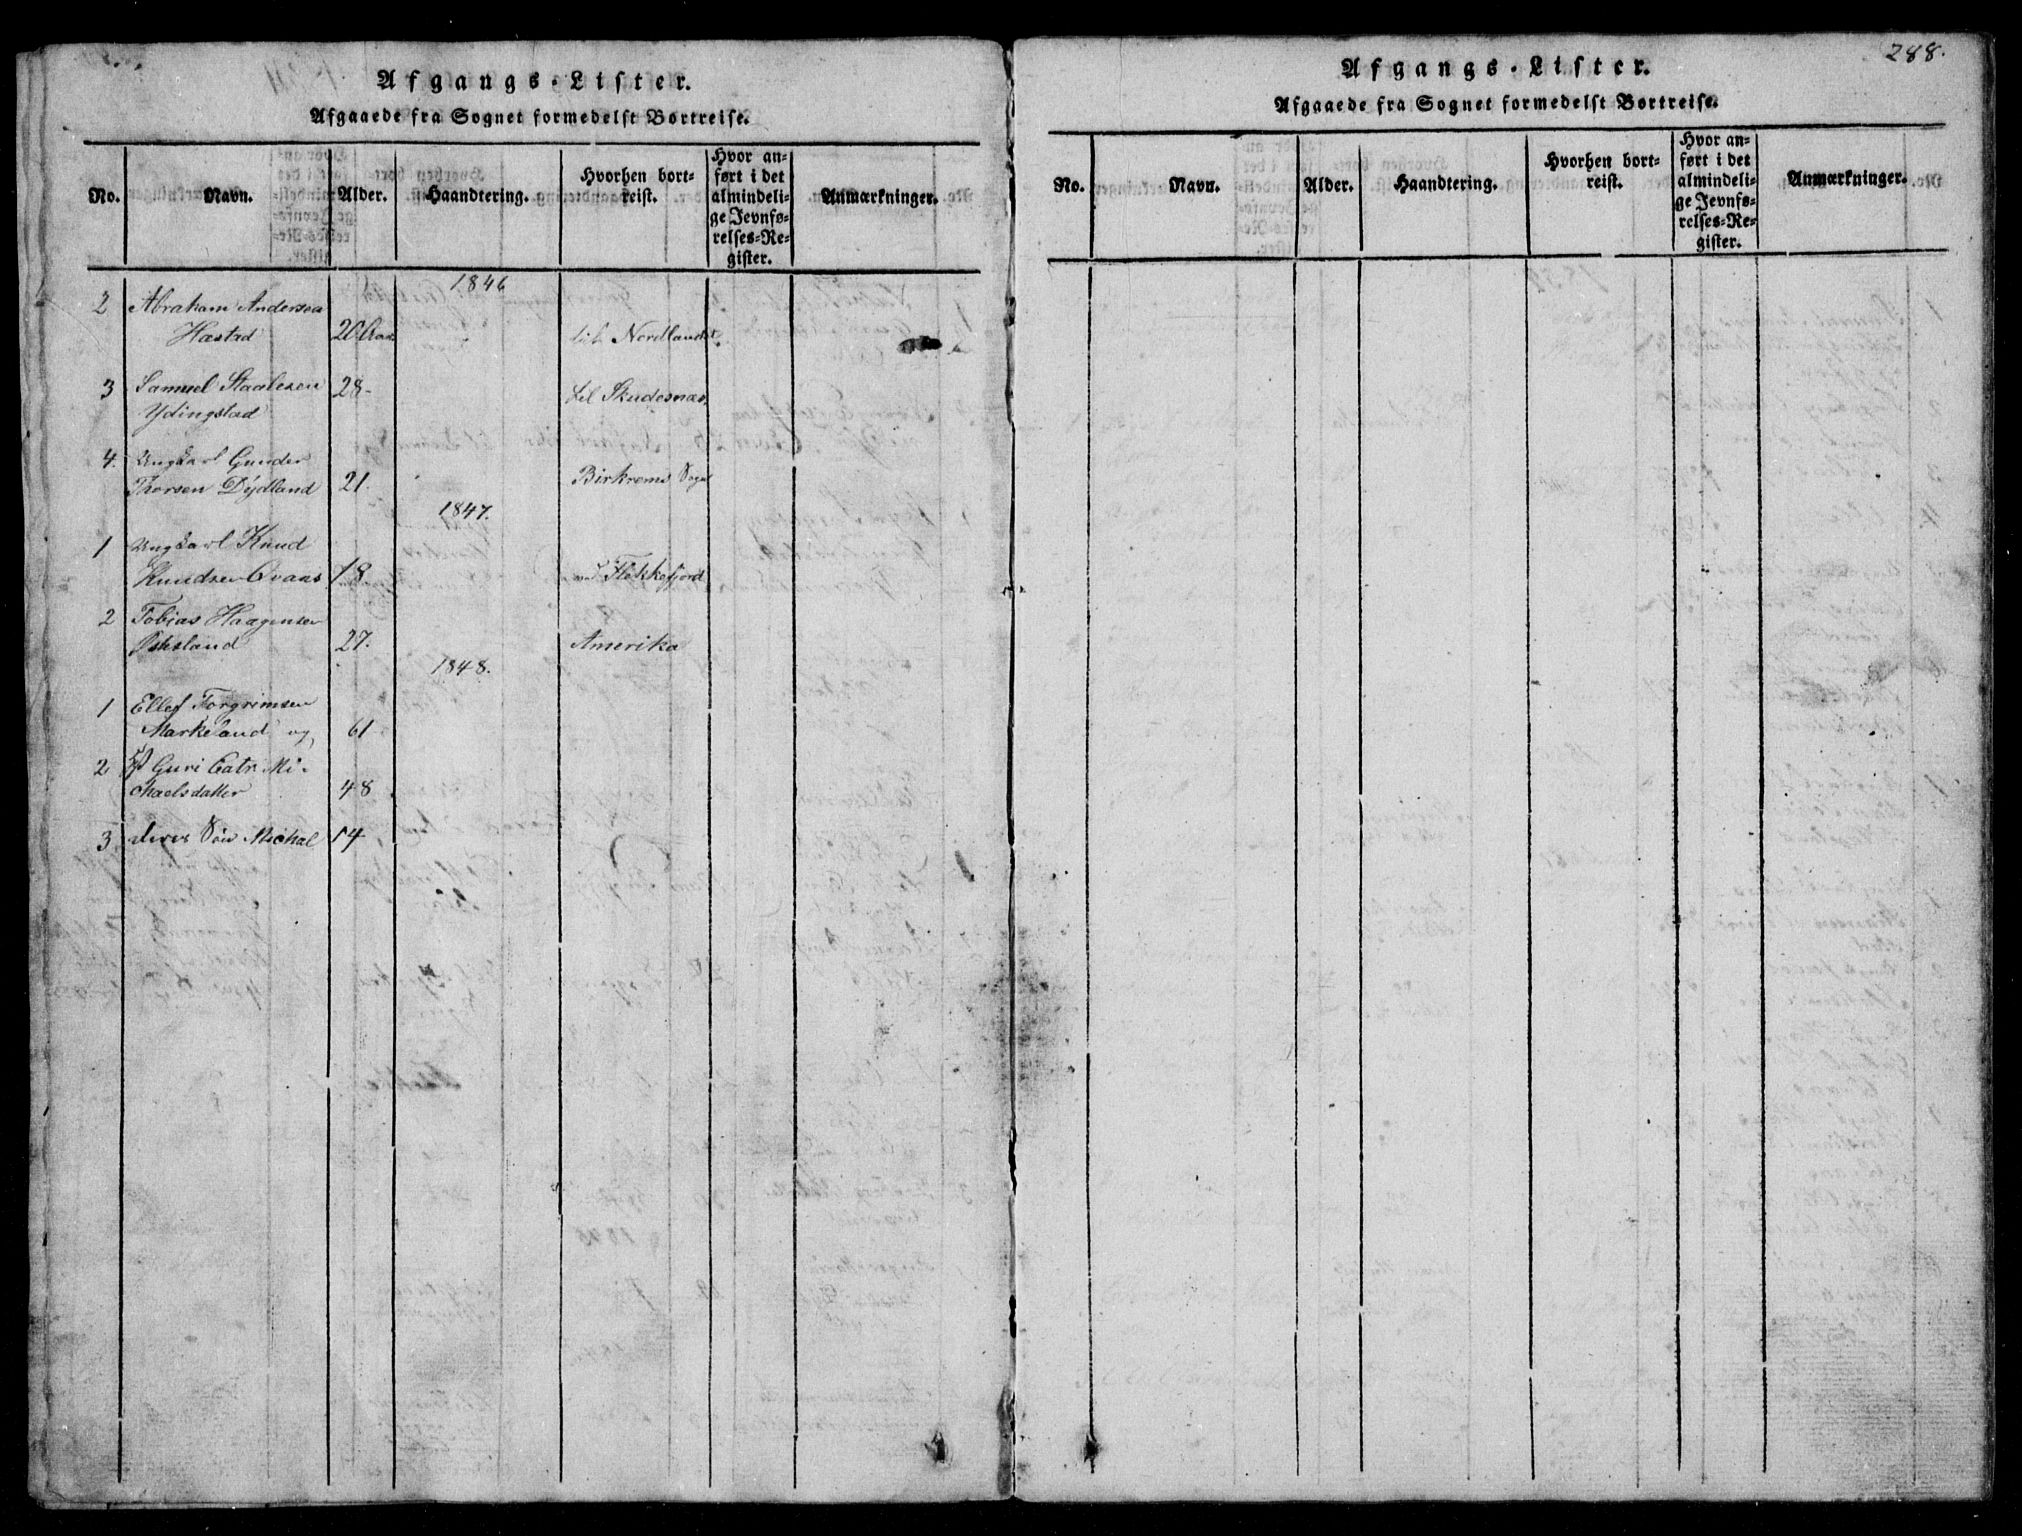 Afgangs-Lister.
Afgaaede fra Sognet formedelst Bortreise.
No. Navn. Alder. Haandtering. Hvorhen bort-
reist. Hvor an-
ført i det
almindeli-
ge Jevnfø-
relses-Re-
gister. Anmærkninger.
1846
2 Abraham Andersen
Hæstad 20 Aar til Nordlandet.
3 Samuel Staalesen 28- til Skudesnæs.
Ydingstad
4. Ungkarl Gunder
Thorsen Dydland 21. Birkrems Sogn
1847.
1 Ungkarl Knud
Knudsen 18 Flekkefjord
2 Tobias Haagensen
27. Amerika
1848.
1 Ellef Torgrimsen
Markeland og 61
2 Guri Catr. Mi-
chaelsdatter 48
3 deres Søn Michal 14
288.
Afgangs-Lister.
Afgaaede fra Sognet formedelst Bortreise.
No. Navn. Alder. Haandtering. Hvorhen bort-
reist. Hvor an-
ført i det
almindeli-
ge Jevnfø-
relses-Re-
gister. Anmærkninger.